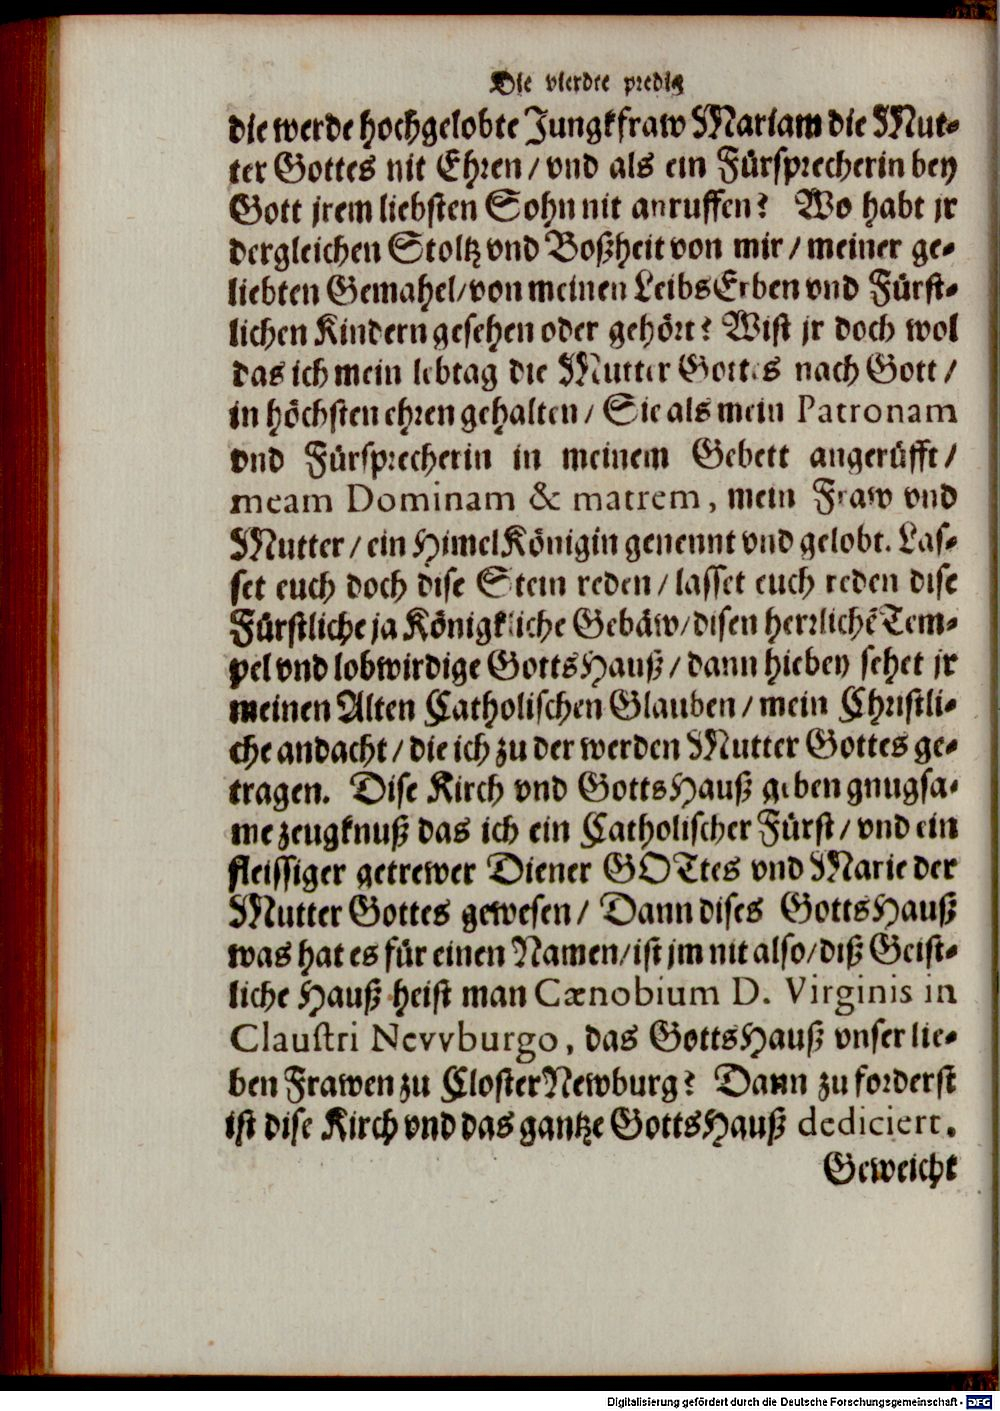 Die vierdte predig
die werde hochgelobte Jungkfraw Mariam die Mut-
ter Gottes nit Ehren / vnd als ein Fürsprecherin bey
Gott jrem liebsten Sohn nit anruffen? Wo habt jr
dergleichen Stoltz vnd Boßheit von mir / meiner ge-
liebten Gemahel / von meinen LeibsErben vnd Fürst-
lichen Kindern gesehen oder gehört? Wist jr doch wol
das ich mein lebtag die Mutter Gottes nach Gott /
in höchsten ehren gehalten / Sie als mein Patronam
vnd Fürsprecherin in meinem Gebett angerüfft /
meam Dominam & matrem, mein Fraw vnd
Mutter / ein HimelKönigin genennt vnd gelobt. Las-
set euch doch dise Stein reden / lasset euch reden dise
Fürstliche ja Königkliche Gebäw / disen herrlichẽ Tem-
pel vnd lobwirdige GottsHauß / dann hiebey sehet jr
meinen Alten Catholischen Glauben / mein Christli-
che andacht / die ich zu der werden Mutter Gottes ge-
tragen. Dise Kirch vnd GottsHauß geben gnugsa-
me zeugknuß das ich ein Catholischer Fürst / vnd ein
fleissiger getrewer Diener GOTtes vnd Marie der
Mutter Gottes gewesen / Dann dises GottsHauß
was hat es für einen Namen / ist jm nit also / diß Geist-
liche Hauß heist man Cænobium D. Virginis in
Claustri Nevvburgo, das GottsHauß vnser lie-
ben Frawen zu Closter Newburg? Dann zu forderst
ist dise Kirch vnd das gantze GottsHauß dediciert.
Geweicht
Digitalisierung gefördert durch die Deutsche Forschungsgemeinschaft - DFG